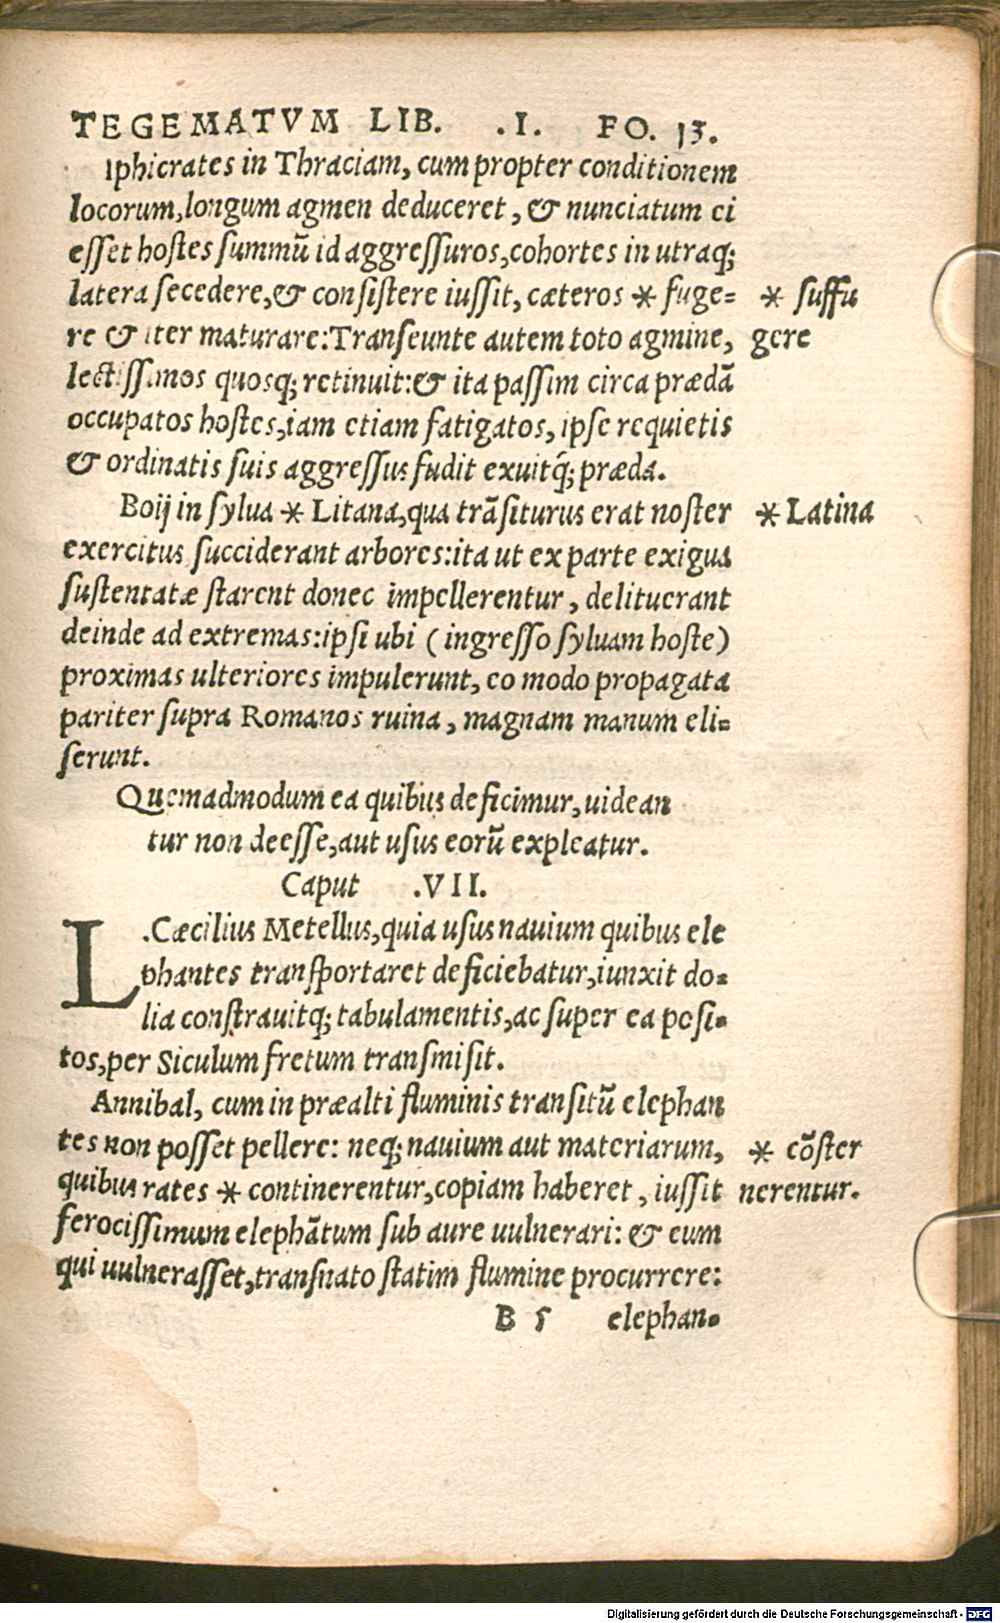 TEGEMATVM LIB. .I. FO. 13.
Iphicrates in Thraciam, cum propter conditionem
locorum, longum agmen deduceret, & nunciatum ei
esset hostes summũ id aggressuros, cohortes in utraq;
latera secedere, & consistere iussit, cæteros * fuge= * suffu
re & iter maturare: Transeunte autem toto agmine, gere
lectissimos quosq; retinuit: & ita passim circa prædã
occupatos hostes, iam etiam fatigatos, ipse requietis
& ordinatis suis aggressus fudit exuitq́; præda.
Boij in sylua * Litana, qua trãsiturus erat noster * Latina
exercitus succiderant arbores: ita ut ex parte exigua
sustentatæ starent donec impellerentur, delituerant
deinde ad extremas: ipsi ubi (ingresso syluam hoste)
proximas ulteriores impulerunt, eo modo propagata
pariter supra Romanos ruina, magnam manum eli=
serunt.
Quemadmodum ea quibus deficimur, uidean
tur non deesse, aut usus eorũ expleatur.
Caput .VII.
L.Cæcilius Metellus, quia usus nauium quibus ele
phantes transportaret deficiebatur, iunxit do=
lia constrauitq; tabulamentis, ac super ea posi=
tos, per Siculum fretum transmisit.
Annibal, cum in præalti fluminis transitũ elephan
tes non posset pellere: neq; nauium aut materiarum, * cõster
quibus rates * continerentur, copiam haberet, iussit nerentur.
ferocissimum elephãtum sub aure uulnerari: & eum
qui uulnerasset, transnato statim flumine procurrere:
B 5 elephan=
Digitalisierung gefördert durch die Deutsche Forschungsgemeinschaft - DFG